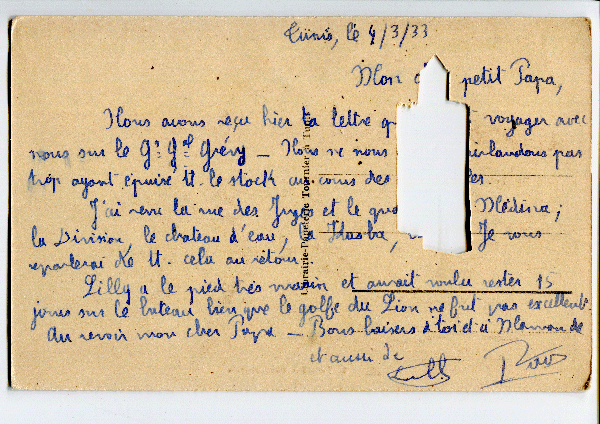 Tunis, le 4/3/33
Mon petit Papa,
Nous avons reçu hier la lettre voyager avec
nous sur le Gr Gal Grévy _ Nous ne nous pas
trop ayant épuisé tt. le stock au cours des
J'ai revu la rue des Juges et le Médina ;
la Division, le château d'eau, la Kasba, Je vous
reparlerai de tt. cela au retour.
Lilly a le pied très marin et aurait voulu rester 15
jours sur le bateau bien que le golfe du Lion ne fut pas excellent.
Au revoir mon cher Papa _ Bons baisers à toi et à Maman de
et aussi de
Librairie-Papeterie Tournier, Tunis